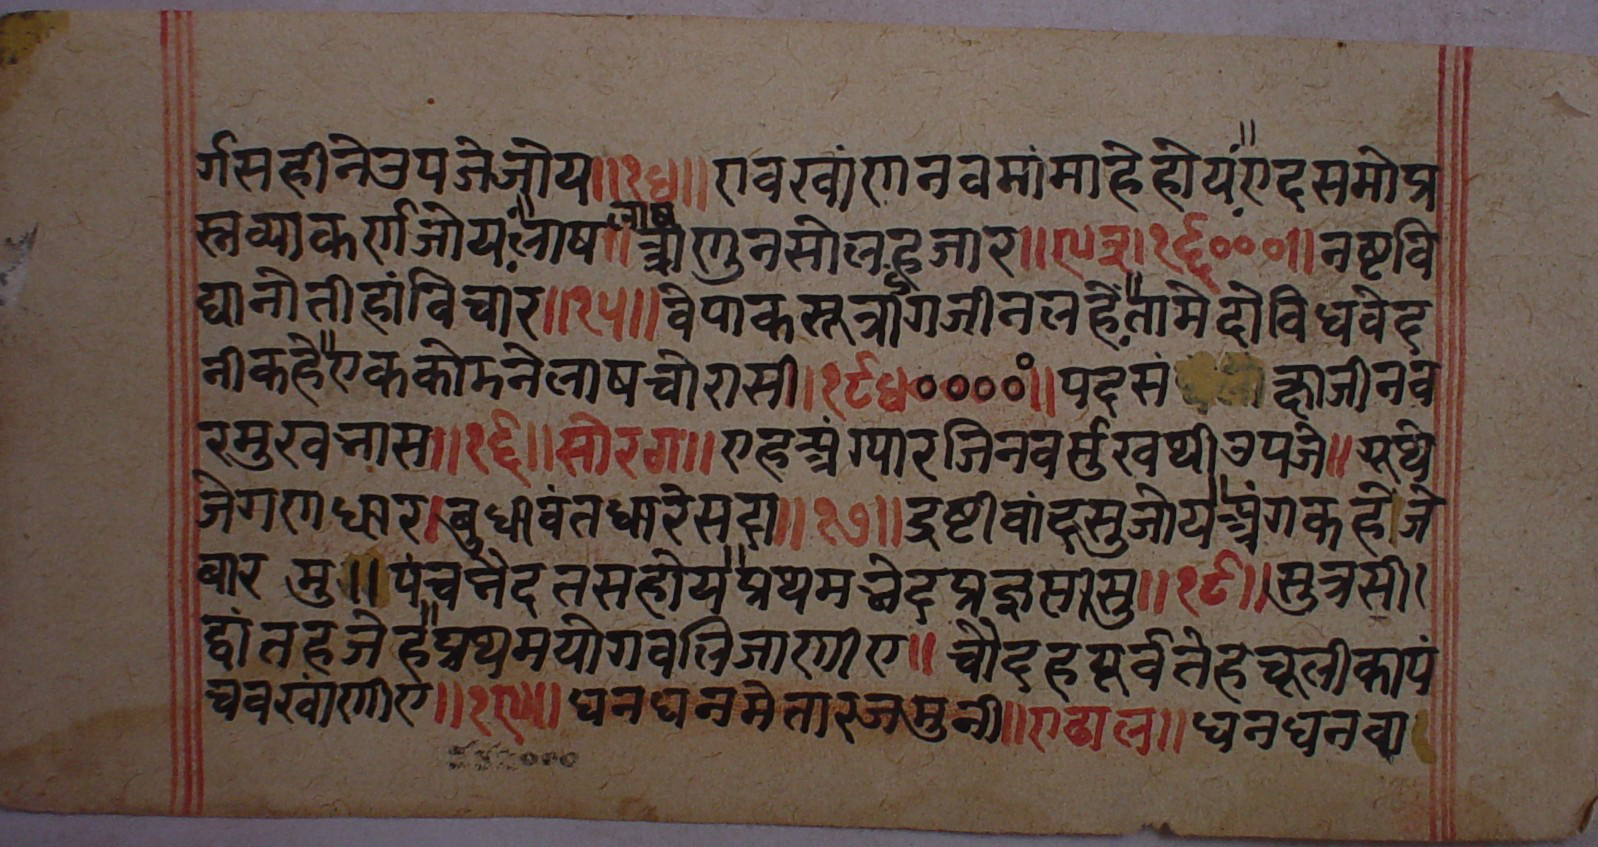 र्गसहीनेउपजेजोय॥१४॥एवखांणनवमांमाहेहोय॥एदसमोप्र
स्नव्याकर्णजोय॥लाषत्राणुनसोलहजार॥९३१६०००॥नष्टवि
द्यानोतीहांविचार॥१५॥वेपाकसूत्रांगजीनलहें॥तामेदोविधवेद
नीकहै॥एककोडनेलाषचोरासी॥१८४०००००॥पदसं ह्माजीनव
रमुखवनास॥१६॥सोरठा॥एहअंग्यारजिनवर्मुखथीउपजे॥गूथे
जेगणधार।बुधीवंतधारेसदा॥१७॥द्रष्टीवांदसुजोय॥अंगकहेजे
बारमु॥पंचनैदतसहोय॥प्रथमनेदप्रज्ञप्तीसु॥१८॥सुत्रसी
द्वांतहजेह॥प्रथमयोगवलिजाणीए॥चौदहपूर्वतेहचूलीकापं
चवखांणीए॥१९॥धनधनमेतारजमुनी॥एढाल॥धनधनवा